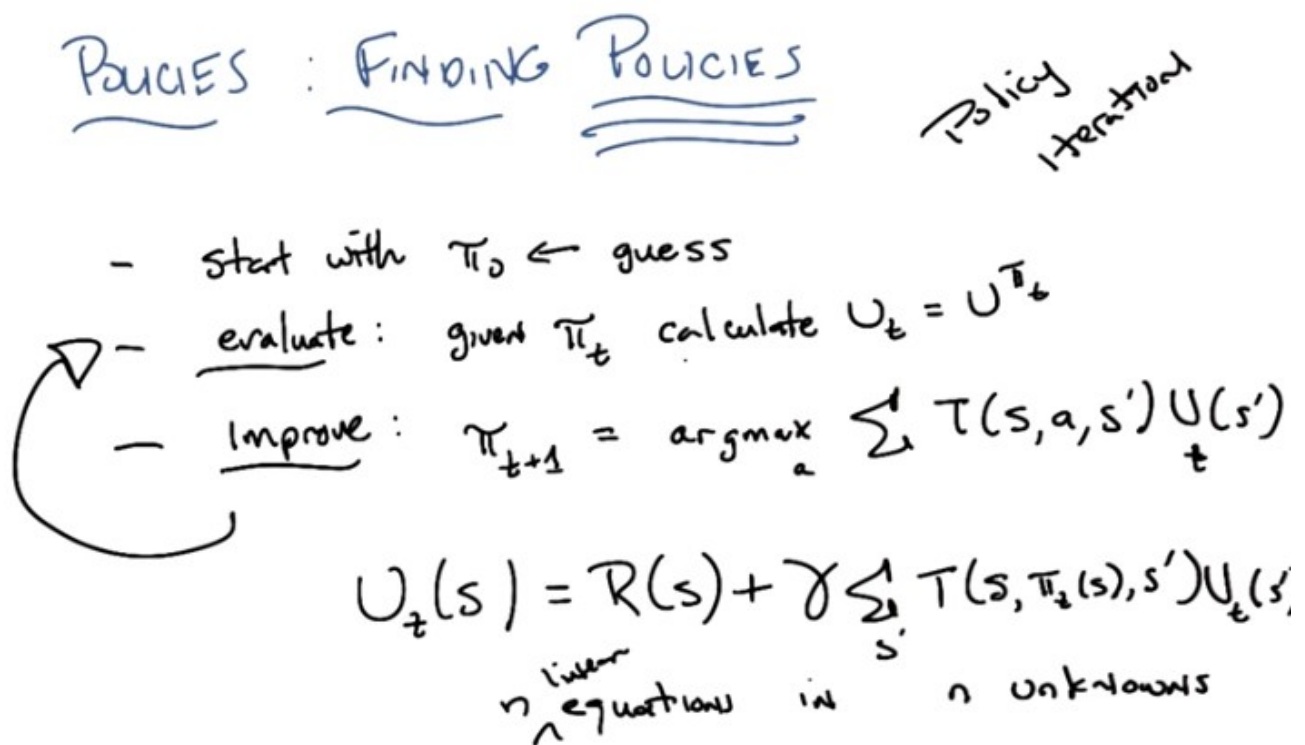 POLICIES : FINDING POLICIES
Policy
Iteration
- start with π₀ ← guess
- evaluate: given π_t calculate U_t = U^π_t
- improve: π_t+1 = argmax_a Σ T(s,a,s') U_t(s')
U_t(s) = R(s) + γ Σ_s' T(s, π_t(s), s') U_t(s')
n linear equations in n unknowns